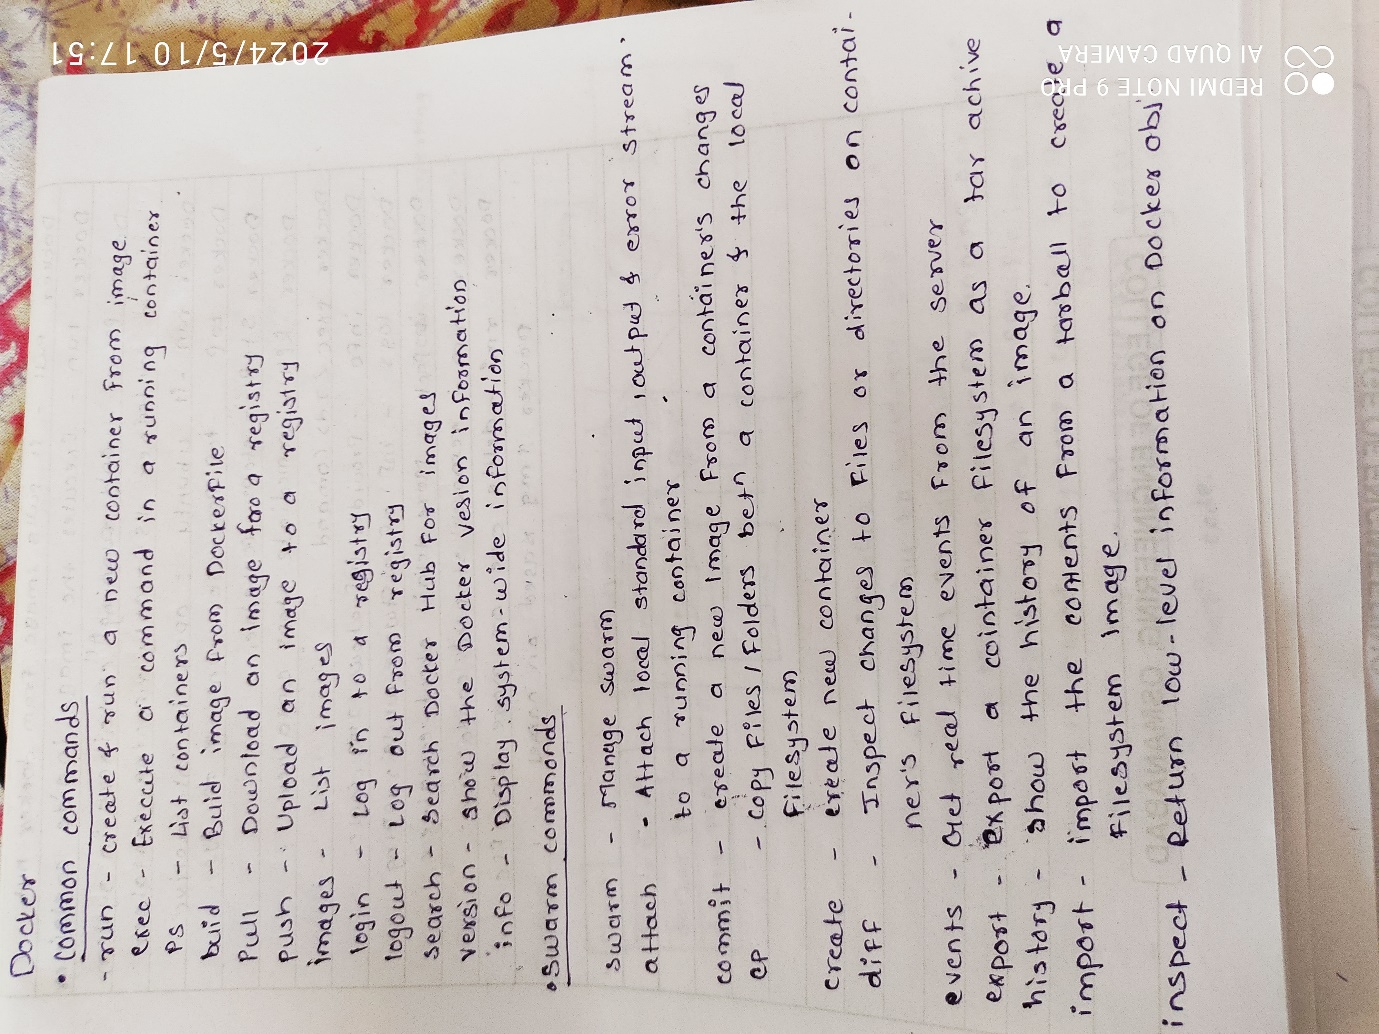 Docker
• Common commands
- run - create & run a new container from image
exec - Execute a command in a running container
Ps - List containers
buid - Buid image from DockerFile
Pull - Download an image from a registry
push - Upload an image to a registry
images - List images
login - Log in to a registry
logout - Log out from registry.
search - search Docker Hub for images
version - show the Docker vesion information
info - Display system-wide information
• Swarm commonds
swarm - Manage swarm
attach - Attach local standard input, output & error stream.
to a running container
commit - create a new image from a container's changes
CP - copy files / folders betn a container & the local
filesystem
create - create new container
diff - Inspect changes to files or directories on contai-
ner's filesystem
events - Get real time events from the server
export - export a cointainer filesystem as a tar achive
history - show the history of an image.
import - import the contents from a tarball to create a
filesystem image.
inspect - Return low-level information on Docker obj
REDMI NOTE 9 PRO
AI QUAD CAMERA
2024/5/10 17:51